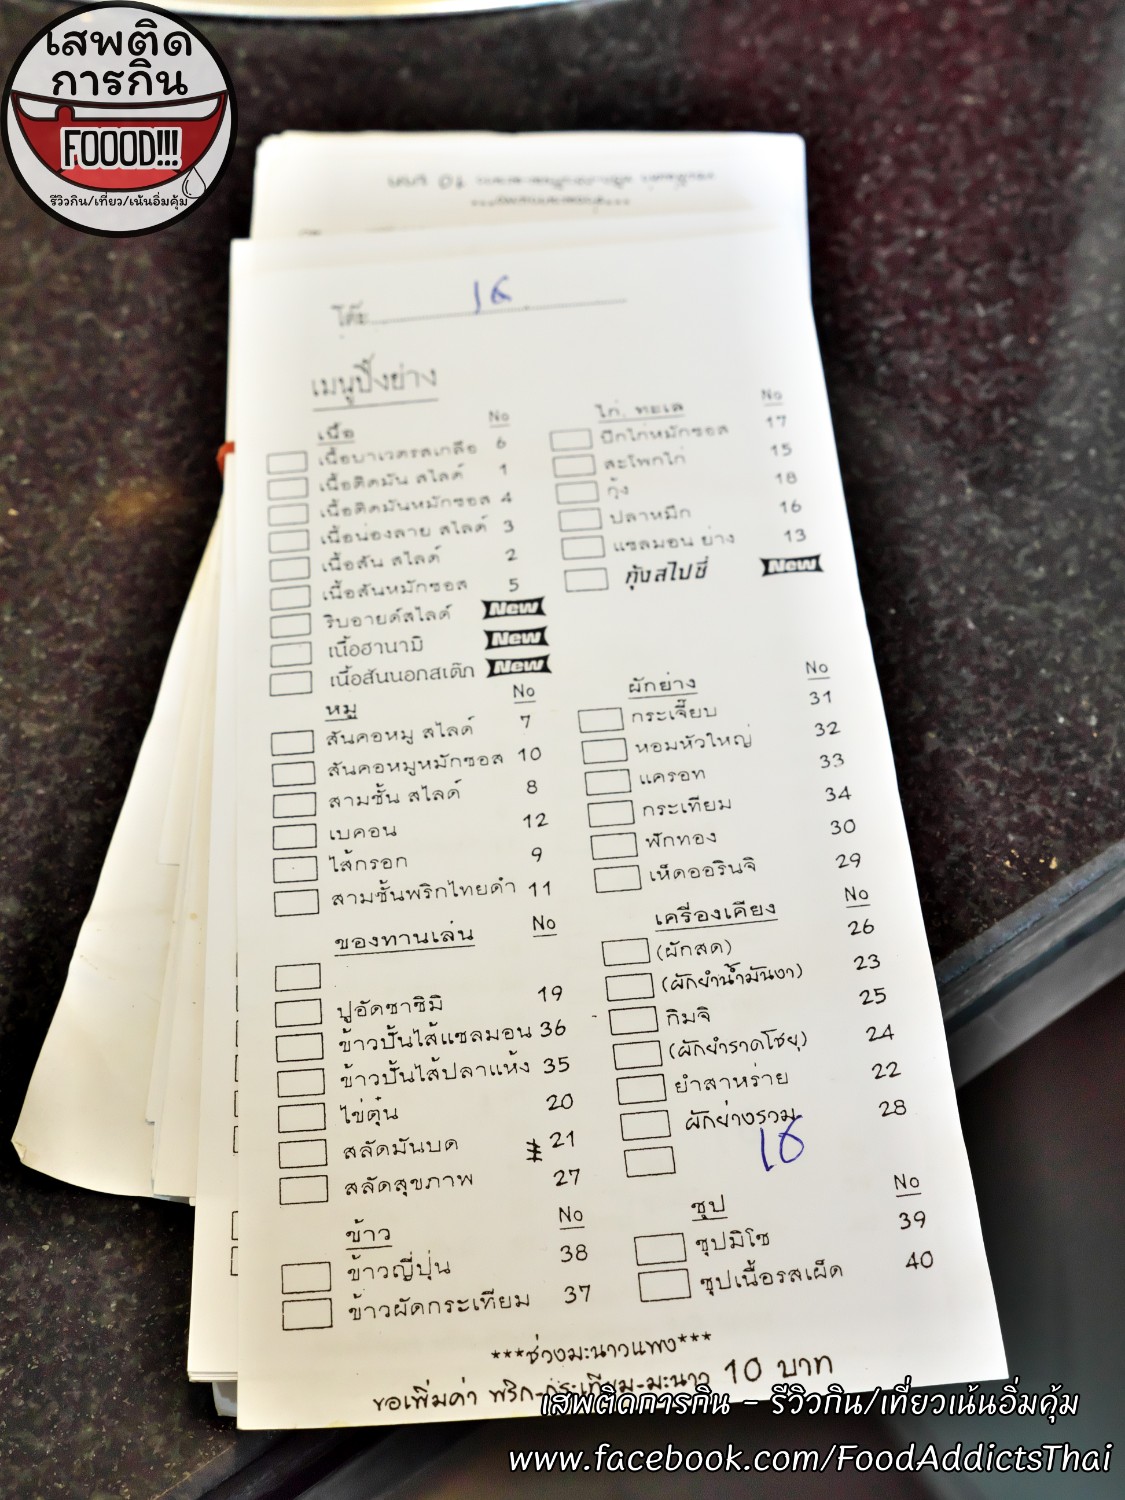 เสพติด
การกิน
FOOOD!!!
รีวิวกิน/เที่ยว/เน้นอิ่มคุ้ม
โต๊ะ 16
เมนูปิ้งย่าง
เนื้อ No
เนื้อบาเวตรสเกลือ 6
เนื้อติดมัน สไลด์ 1
เนื้อติดมันหมักซอส 4
เนื้อน่องลาย สไลด์ 3
เนื้อสัน สไลด์ 2
เนื้อสันหมักซอส 5
ริบอายด์สไลด์ New
เนื้อฮานามิ New
เนื้อสันนอกสเต๊ก New
หมู No
สันคอหมู สไลด์ 7
สันคอหมูหมักซอส 10
สามชั้น สไลด์ 8
เบคอน 12
ไส้กรอก 9
สามชั้นพริกไทยดำ 11
ของทานเล่น No
ปูอัดซาซิมิ 19
ข้าวปั้นไส้แซลมอน 36
ข้าวปั้นไส้ปลาแห้ง 35
ไข่ตุ๋น 20
สลัดมันบด 21
สลัดสุขภาพ 27
ข้าว No
ข้าวญี่ปุ่น 38
ข้าวผัดกระเทียม 37
ไก่, ทะเล No
ปีกไก่หมักซอส 17
สะโพกไก่ 15
กุ้ง 18
ปลาหมึก 16
แซลมอน ย่าง 13
กุ้งสไปซี่ New
ผักย่าง No
กระเจี๊ยบ 31
หอมหัวใหญ่ 32
แครอท 33
กระเทียม 34
ฟักทอง 30
เห็ดออรินจิ 29
เครื่องเคียง No
(ผักสด) 26
(ผักยำน้ำมันงา) 23
กิมจิ 25
(ผักยำราดโชยุ) 24
ยำสาหร่าย 22
ผักย่างรวม 28
16
ซุป No
ซุปมิโซ 39
ซุปเนื้อรสเผ็ด 40
***ช่วงมะนาวแพง***
ขอเพิ่มค่า พริก-กระเทียม-มะนาว 10 บาท
เสพติดการกิน - รีวิวกิน/เที่ยวเน้นอิ่มคุ้ม
www.facebook.com/FoodAddictsThai